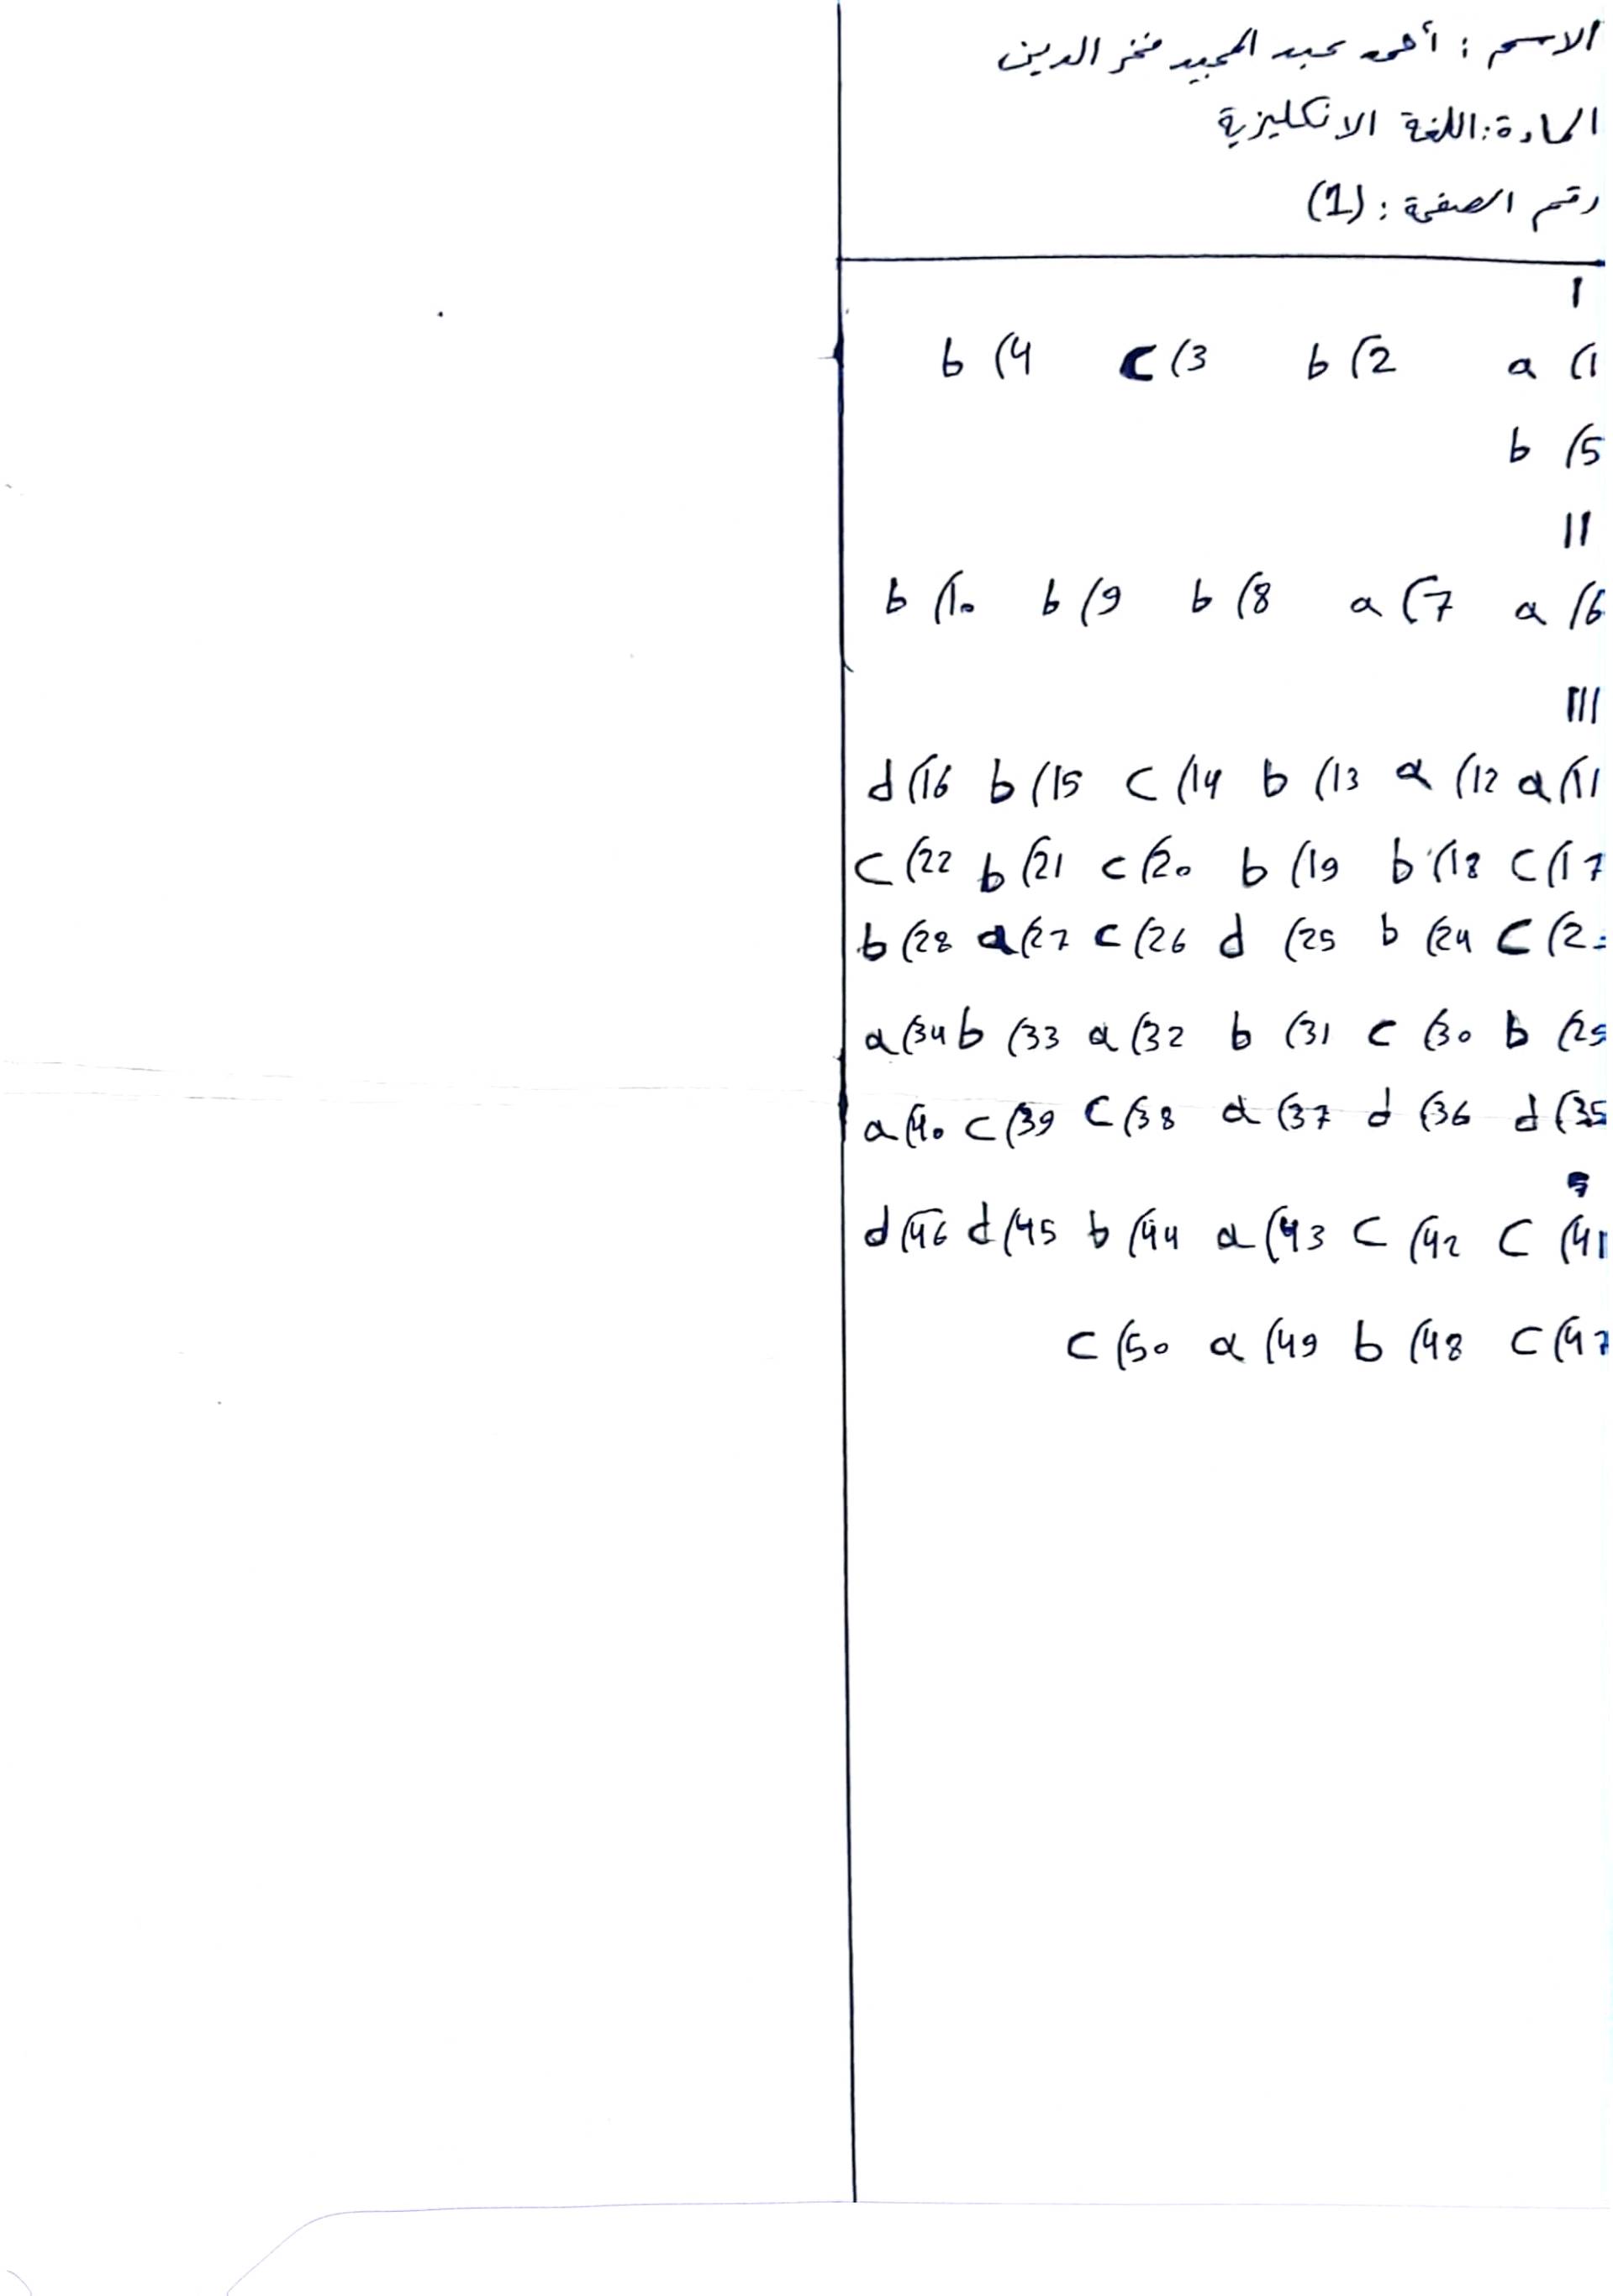 الاسم : أحمد عبد المجيد فخر الدين
المادة: اللغة الانكليزية
رقم الصفحة : (1)
I
1) a 2) b 3) c 4) b
5) b
II
6) a 7) a 8) b 9) b 10) b
III
11) a 12) a 13) b 14) c 15) b 16) d
17) c 18) b 19) b 20) c 21) b 22) c
2 c 24) b 25) d 26) c 27) a 28) b
29) b 30) c 31) b 32) a 33) b 34) a
35) d 36) d 37) a 38) c 39) c 40) a
41) c 42) c 43) a 44) b 45) d 46) d
47) c 48) b 49) a 50) c